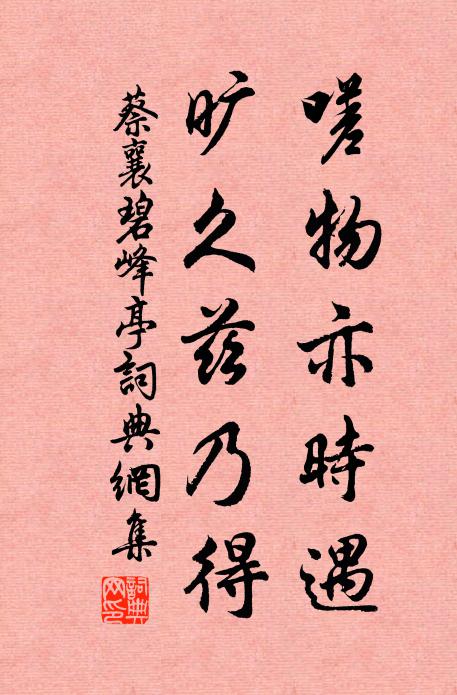 嗟物亦時遇
旷久茲乃得
蔡襄碧峰亭詞典網集
詞典網印